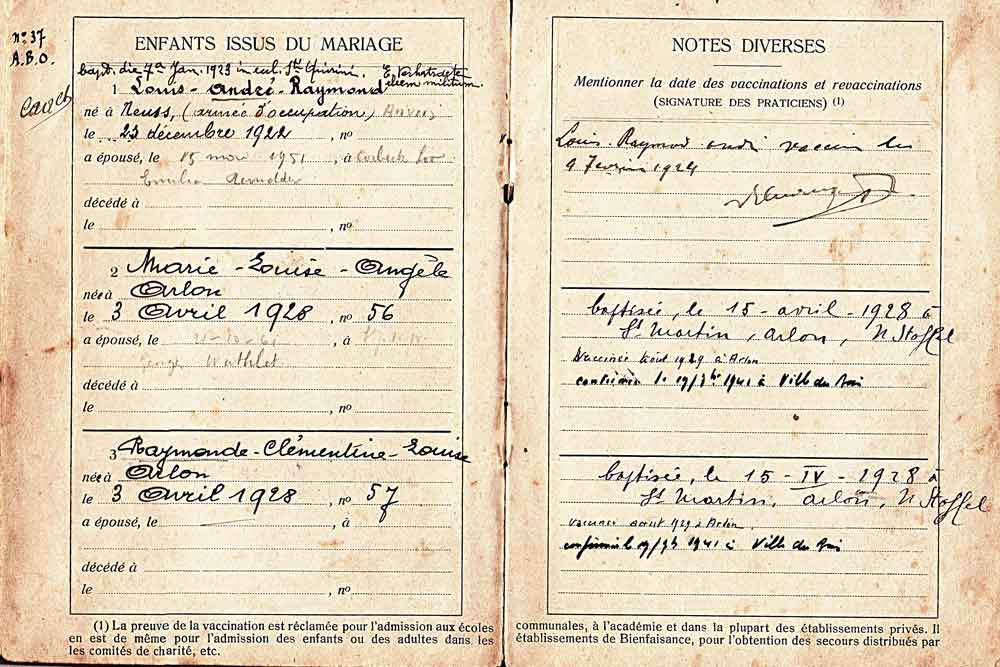 nº 37
A.B.O.
ENFANTS ISSUS DU MARIAGE
bapt. die 7ª Jan. 1923 in eccl. Sti Quirini.
militum.
1 Louis-André-Raymond
né à Neuss, (armée d'occupation)
le 23 décembre 1922, nº
a épousé, le 15 1951, à Corbeek Loo
Emilia
décédé à
le , nº
2 Marie-Louise-Angèle
née à Arlon
le 3 Avril 1928, nº 56
a épousé, le , à
décédé à
le , nº
3 Raymonde-Clémentine-Louise
née à Arlon
le 3 Avril 1928, nº 57
a épousé, le , à
décédé à
le , nº
(1) La preuve de la vaccination est réclamée pour l'admission aux écoles
en est de même pour l'admission des enfants ou des adultes dans les
les comités de charité, etc.
NOTES DIVERSES
Mentionner la date des vaccinations et revaccinations
(SIGNATURE DES PRATICIENS) (1)
Louis Raymond vaccin
9 Fevrier 1924
baptisée, le 15 - avril - 1928 à
St Martin, Arlon, N. Stoffel
vaccinée août 1929 à Arlon
confirmée le 19/ 1941 à Ville du Bois
baptisée, le 15 - IV - 1928 à
St Martin, Arlon, N. Stoffel
vaccinée août 1929 à Arlon
confirmée le 19/ 1941 à Ville du Bois
communales, à l'académie et dans la plupart des établissements privés. Il
établissements de Bienfaisance, pour l'obtention des secours distribués par